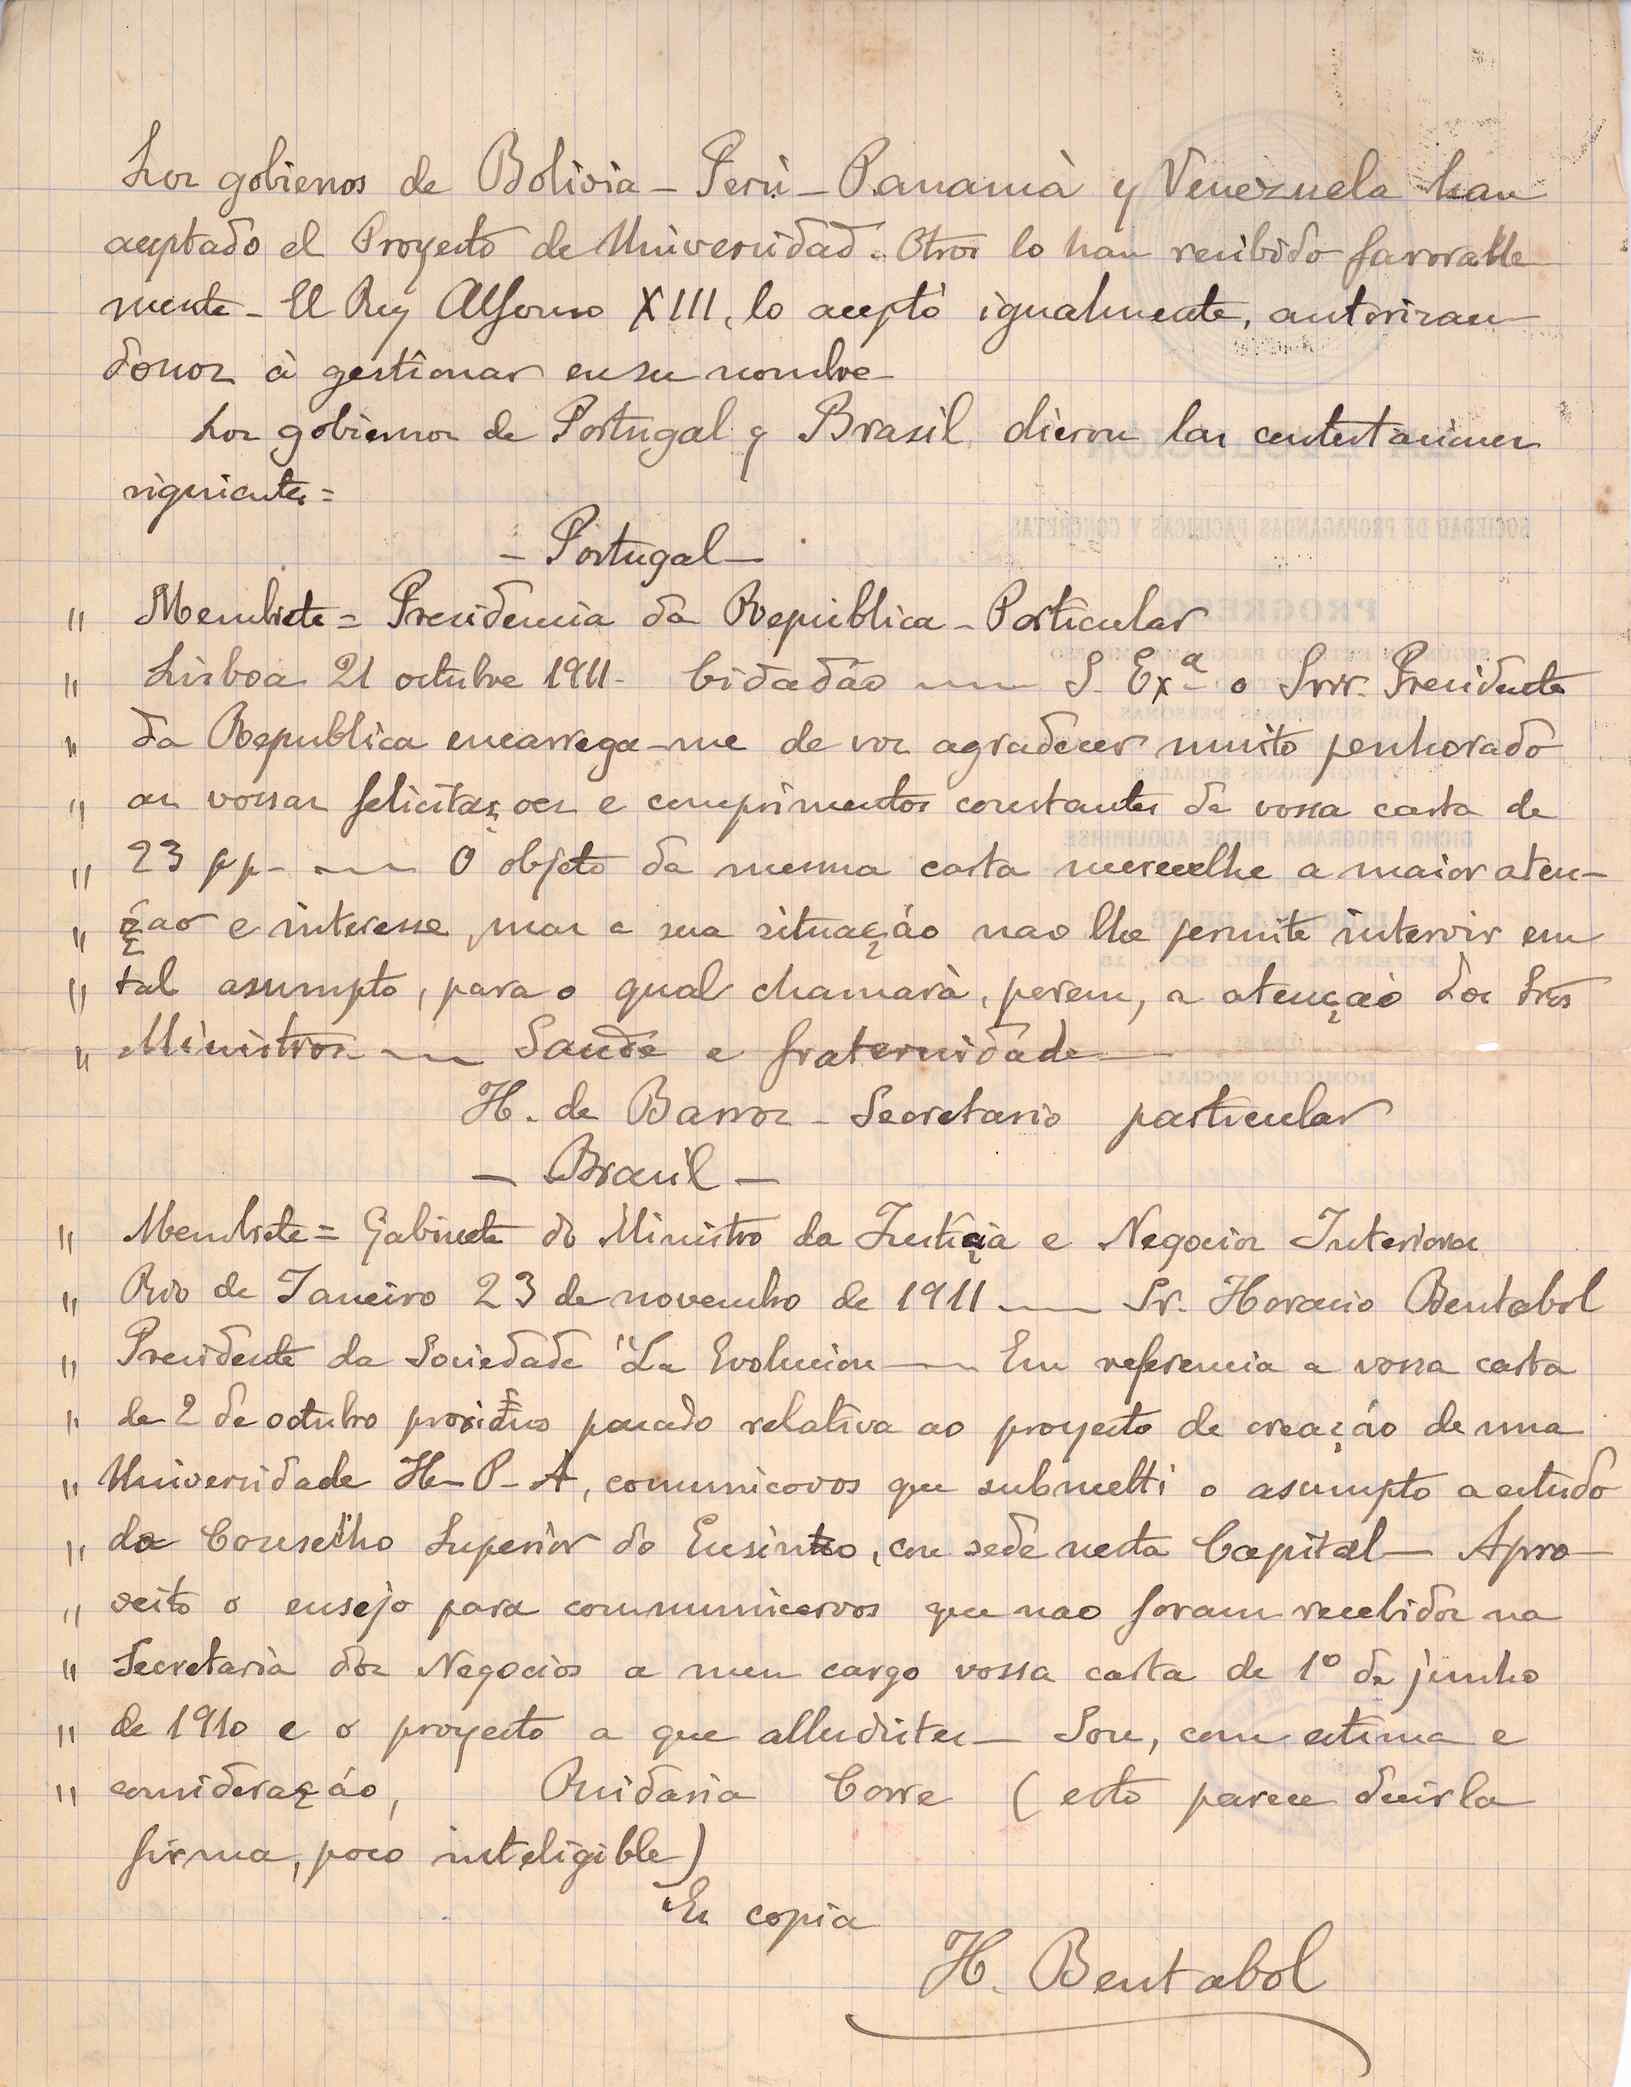 Los gobienos de Bolivia - Perù - Panamà y Venezuela han
aceptado el Proyecto de Universidad. Otros lo han recibido favorable
mente - El Rey Alfonso XIII, lo aceptó igualmente, autorizan
donos à gestionar en su nombre -
Los gobiernos de Portugal y Brasil dieron las contestaciones
siguientes =
- Portugal -
" Membrete = Presidencia da Republica - Particular
" Lisboa 21 octubre 1911 - Cidadáo —— S. Exª o Snr. Presidente
" da Republica encarrega-me de vos agradecer muito penhorado
" as vossas felicitaçoes e comprimentos constantes da vossa carta de
" 23 pp - —— O objeto da mesma carta merecelhe a maior aten-
" çao e interesse, mas a sua situaçáo nao lhe permite intervir em
" tal asumpto, para o qual chamarà, porem, a atençaó dos Srés
" Ministros —— Saude e fraternidade —
H. de Barros - Secretario particular
- Brasil -
" Membrete = Gabinete do Ministro da Justiçia e Negocios Interiores
" Rio de Janeiro 23 de novembro de 1911 —— Sr. Horacio Bentabol
" Presidente da Sociedade "La Evolucion —— Em referencia a vossa carta
" de 2 de octubro proximo pasado relativa ao proyecto de creaçáo de una
" Universidade H-P-A, comunicovos que submetti o asumpto a estudo
" do Conselho Superior do Ensino, con sede nesta Capital — Apro-
" veito o ensejo para communicarvos que nao foram recebidos na
" Secretaria dos Negocios a meu cargo vossa carta de 1º de junho
" de 1910 e o proyecto a que alludistes - Sou, com estima e
" consideraçáo, Ruidaria Corre (esto parece decir la
firma, poco inteligible)
Es copia
H. Bentabol